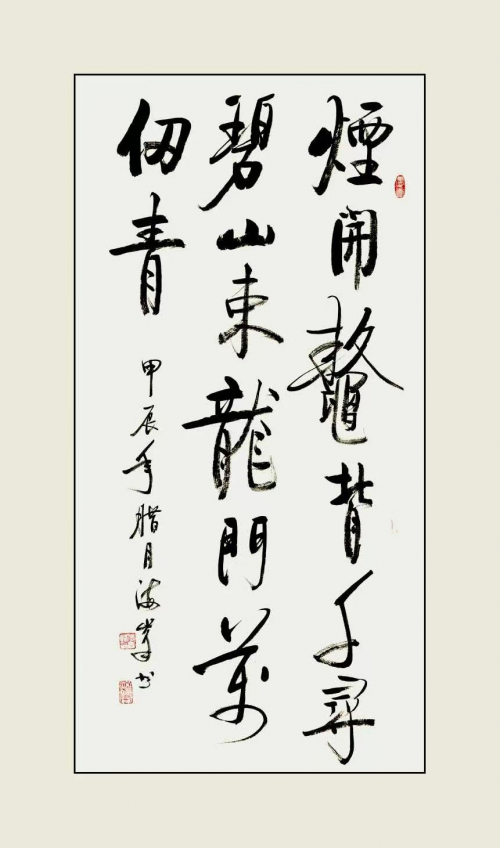 煙開鼇背千尋
碧山束龍門萬
仞青
甲辰年腊月海峯书